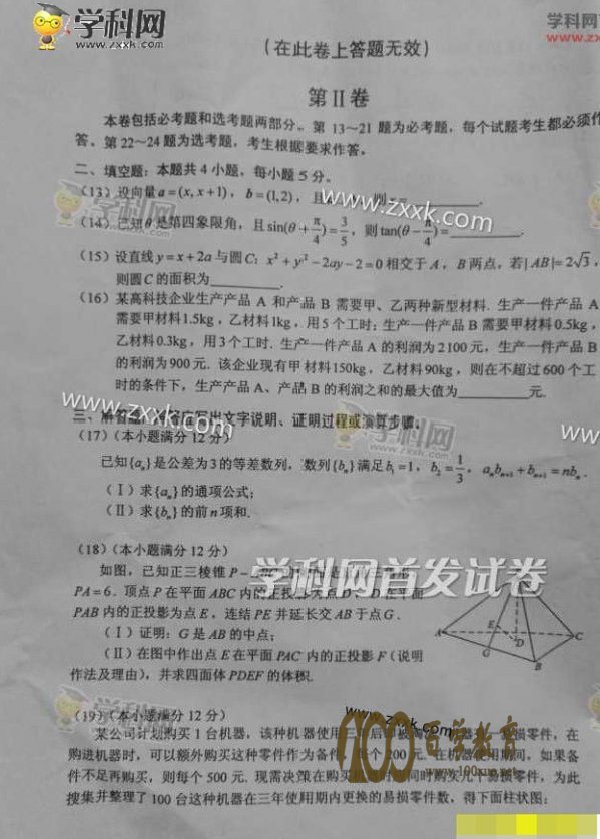 学科网
www.zxxk.com
学科网
www.z
(在此卷上答题无效)
第 II 卷
本卷包括必考题和选考题两部分。第 13~21 题为必考题，每个试题考生都必须作
答。第 22~24 题为选考题，考生根据要求作答。
二、填空题：本题共 4 小题，每小题 5 分。
(13) 设向量 a=(x, x+1)，b=(1,2)，且
www.zxxk.com
(14) 已知θ是第四象限角，且 sin(θ+π/4)=3/5，则 tan(θ-π/4)=
(15) 设直线 y=x+2a 与圆 C：x²+y²-2ay-2=0 相交于 A，B 两点，若|AB|=2√3，
则圆 C 的面积为
(16) 某高科技企业生产产品 A 和产品 B 需要甲、乙两种新型材料. 生产一件产品 A
需要甲材料1.5kg，乙材料1kg，用 5 个工时；生产一件产品 B 需要甲材料0.5kg，
乙材料0.3kg，用 3 个工时. 生产一件产品 A 的利润为 2100 元，生产一件产品 B
的利润为 900 元. 该企业现有甲材料150kg，乙材料90kg，则在不超过 600 个工
时的条件下，生产产品 A、产品 B 的利润之和的最大值为 元.
www.zxxk.com
三、解答题 写出文字说明、证明过程或演算步骤。
www
(17)（本小题满分 12 分）
已知{aₙ}是公差为 3 的等差数列，数列{bₙ}满足 b₁=1，b₂=1/3，aₙbₙ₊₁+bₙ₊₁=nbₙ.
(Ⅰ) 求{aₙ}的通项公式；
(Ⅱ) 求{bₙ}的前 n 项和.
(18)（本小题满分 12 分）
学科网首发试卷
如图，已知正三棱锥 P-
PA=6. 顶点 P 在平面 ABC 内的正投影 平面
PAB 内的正投影为点 E，连结 PE 并延长交 AB 于点 G.
(Ⅰ) 证明：G 是 AB 的中点；
(Ⅱ) 在图中作出点 E 在平面 PAC 内的正投影 F（说明
作法及理由），并求四面体 PDEF 的体积.
A
E
D
C
G
B
学科网
www.zxxk.com
(19)（本小题满分 12 分）
某公司计划购买 1 台机器，该种机器使用三年后 易损零件，在
购进机器时，可以额外购买这种零件作为备件，每个 200 元. 在机器使用期间，如果备
件不足再购买，则每个 500 元. 现需决策在购买机器时 同时购买几个易损零件，为此
搜集并整理了 100 台这种机器在三年使用期内更换的易损零件数，得下面柱状图：
100百学教育